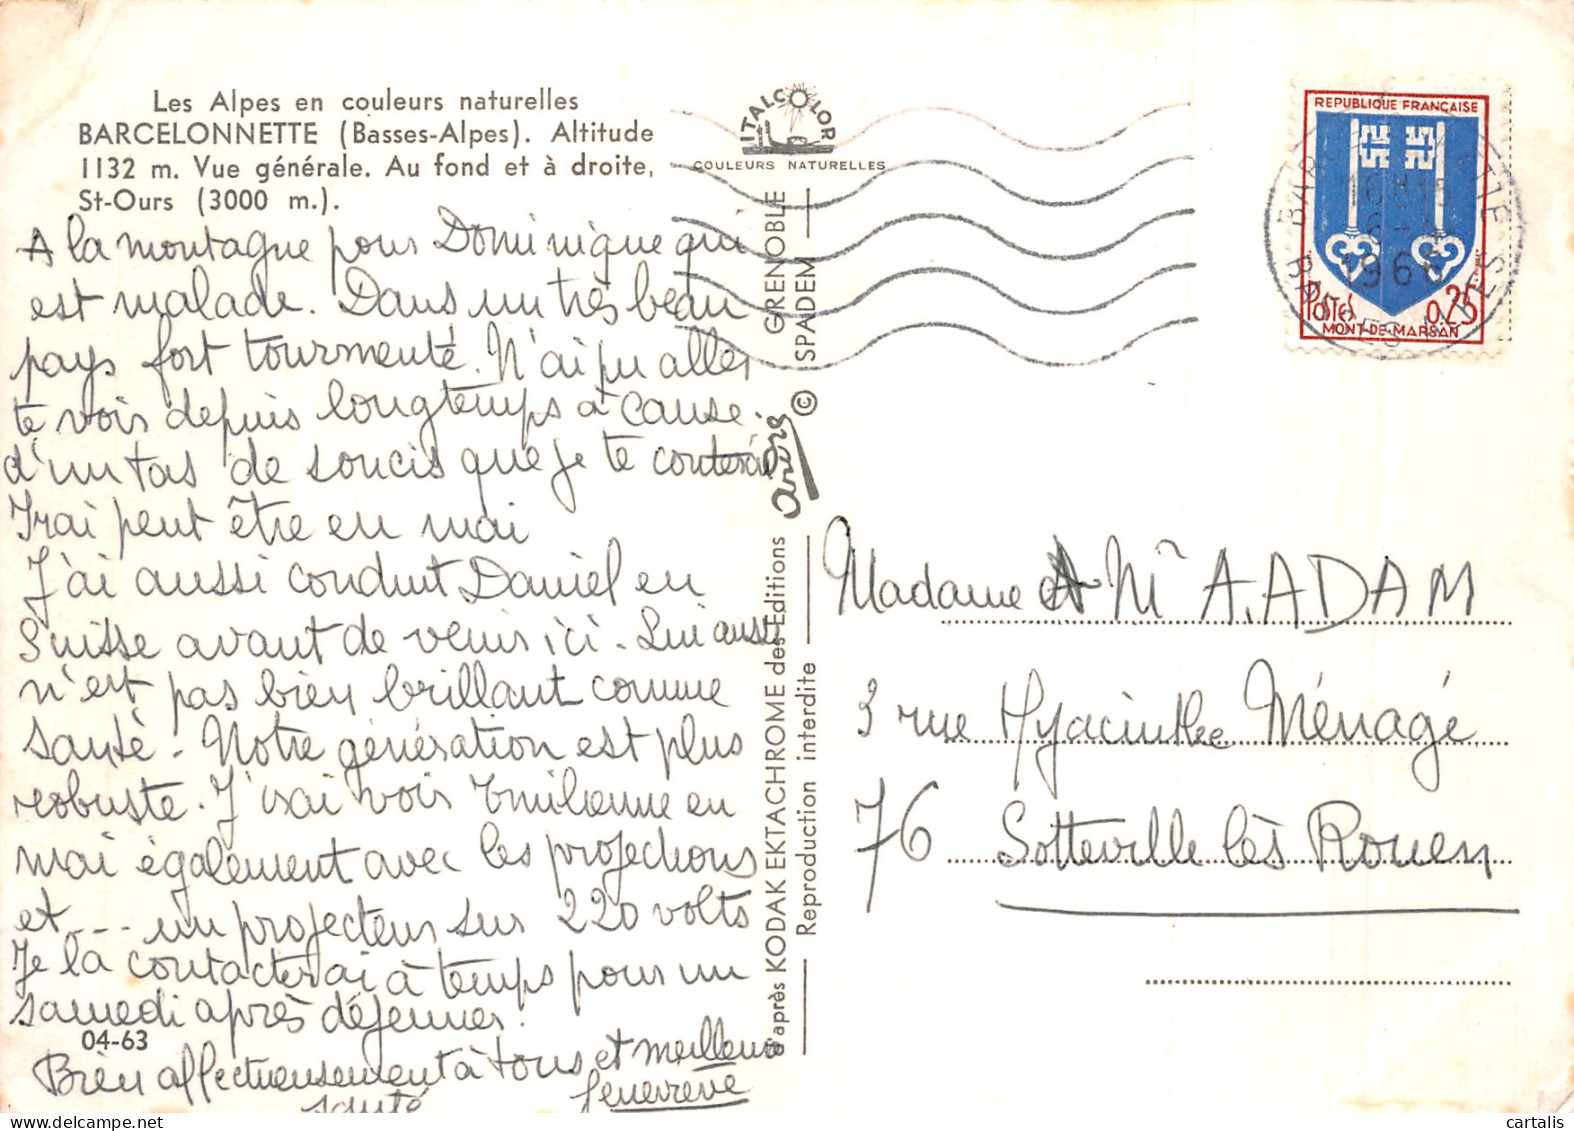 Les Alpes en couleurs naturelles
BARCELONNETTE (Basses-Alpes). Altitude
1132 m. Vue générale. Au fond et à droite,
St-Ours (3000 m.).
A la montagne pour Dominique qui
est malade. Dans un très beau
pays fort tourmenté. N'ai pu aller
te voir depuis longtemps à cause
d'un tas de soucis que je te conterai
Irai peut être en mai
J'ai aussi conduit Daniel en
Suisse avant de venir ici. Lui aussi
n'est pas bien brillant comme
santé! Notre génération est plus
robuste. J'irai voir Emilienne en
mai également avec les projections
et... un projecteur sur 220 volts
Je la contacterai à temps pour un
samedi après déjeuner!
04-63
Bien affectueusement à tous et meilleure
santé
Genevieve
ITALCOLOR
COULEURS NATURELLES
d'après KODAK EKTACHROME des Editions André GRENOBLE
Reproduction interdite © SPADEM
REPUBLIQUE FRANÇAISE
Postes 0,25
MONT-DE-MARSAN
BASSES ALPES
1966
Madame et Mr A. ADAM
3 rue Hyacinthe Ménagé
76 Sotteville lès Rouen
cartalis